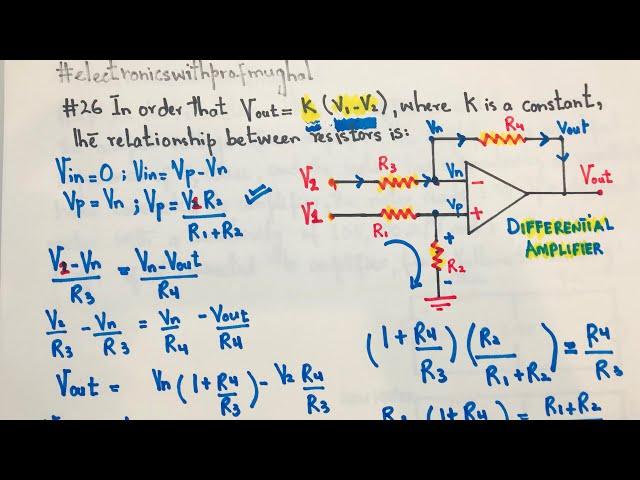 #electronicswithprofmughal
#26 In order that Vout = K (V1-V2), where K is a constant,
the relationship between resistors is:
Vin=0 ; Vin= Vp-Vn
Vp=Vn ; Vp= V1R2/(R1+R2) ✓
(V2-Vn)/R3 = (Vn-Vout)/R4
V2/R3 - Vn/R3 = Vn/R4 - Vout/R4
Vout = Vn(1+R4/R3) - V2 R4/R3
Vn R4 Vout
V2 R3 Vn -
V1 R1 Vp + Vout
+ R2 -
DIFFERENTIAL
AMPLIFIER
(1+R4/R3)(R2/(R1+R2)) = R4/R3
(1+R4 = R1+R2